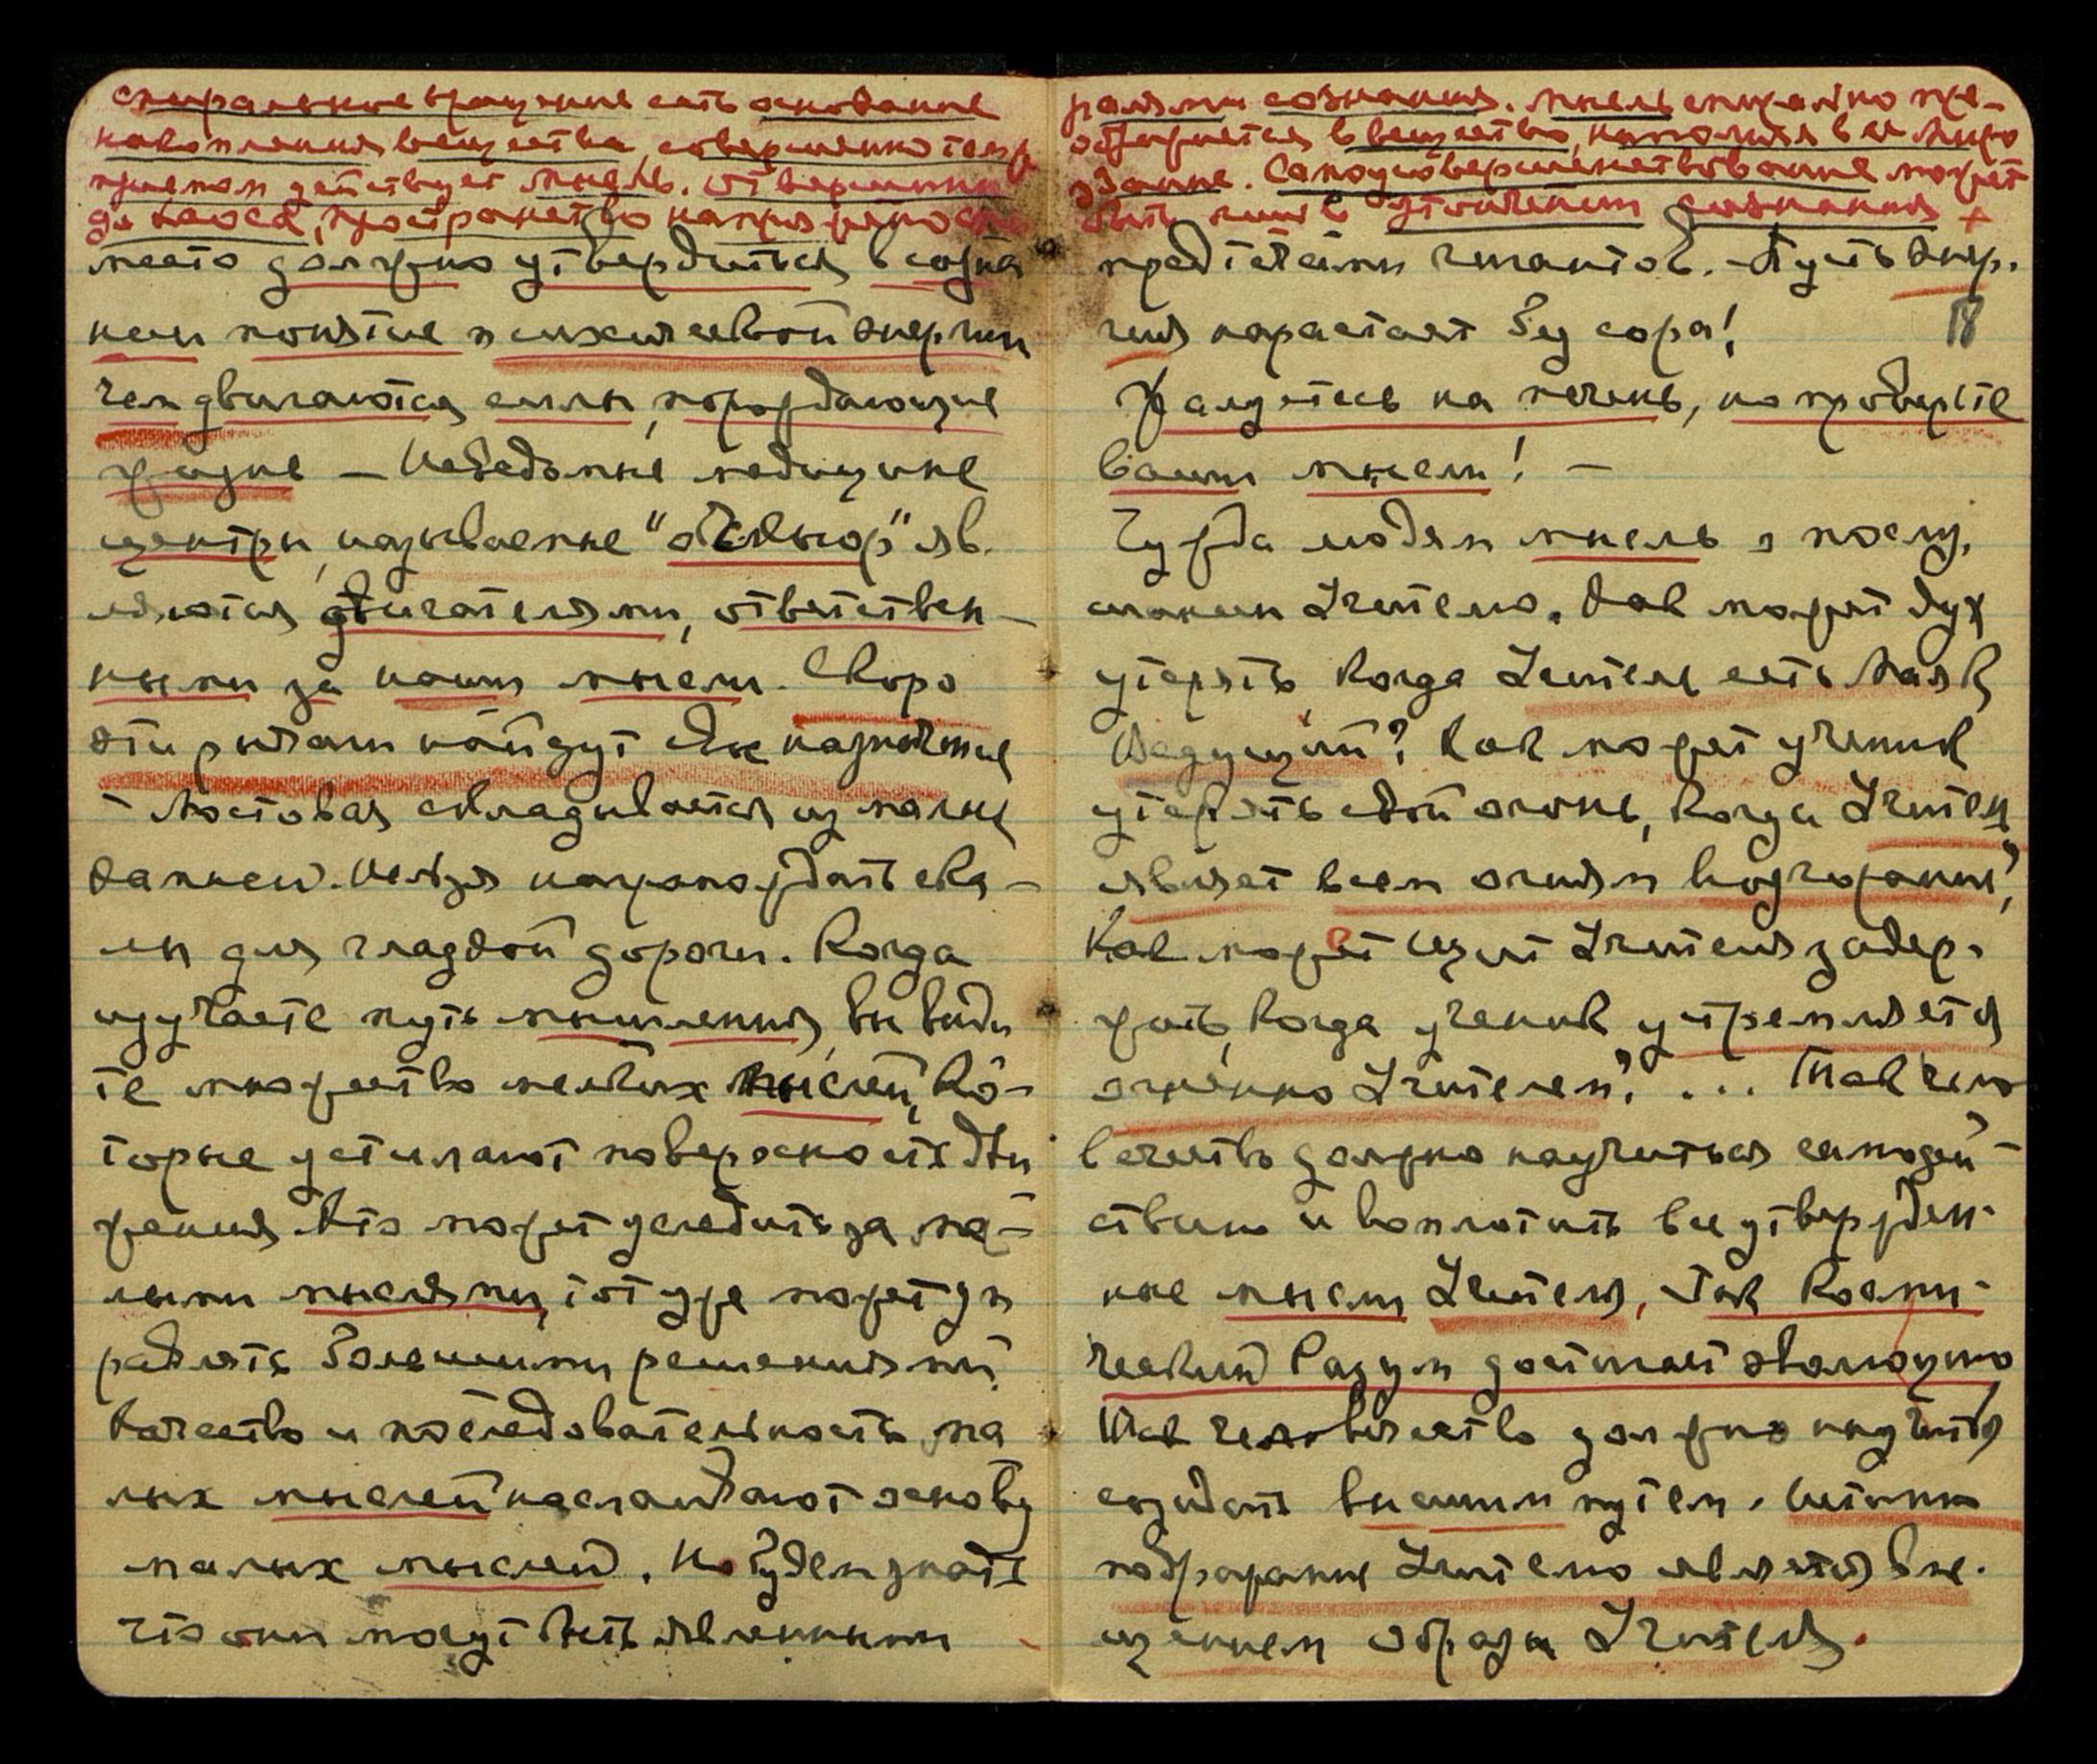 спиральное вращение есть основание
накопления вещества, совершенно тем же
приемом действует мысль. От вершины
до хаоса, пространство напряжено спи
место должно утвердиться в созна
нии понятие психической энергии
чем двигаются силы, порождающие
жизнь — Неведомые медицине
центры, называемые "
ляются двигателями, ответствен-
ными за наши мысли. Скоро
эти рычаги найдут свое назначение
- Мостовая складывается из малых
камней. Нельзя нагромождать ска-
лы для гладкой дороги. Когда
изучаете путь мышления, вы види
те множество мелких мыслей, ко-
торые устилают поверхность дви
жения. Кто может уследить за ма-
лыми мыслями, тот уже может уп
равлять большими решениями.
Качество и последовательность ма
лых мыслей наслаивают основу
малых мыслей. Но будем знать
что они могут быть явленными
ралями сознания. Мысль спирально пре-
ображается в вещество, наполняя все Миро
здание. Самоусовершенствование может
быть лишь в утончении сознания +
предтечами гигантов. - Пусть энер.
гия нарастает без сора!
18
Жалуетесь на печень, но проверьте
ваши мысли! —
Чужда людям мысль о послу.
шании Учителю. Как может дух
утерять, когда Учитель есть Маяк
Ведущий? Как может ученик
утерять свой огонь, когда Учитель
являет всем огням возгорание?
Как может Щит Учителя задер.
жать, когда ученик устремляется
огненно Учителем? ... Так чело
вечество должно научиться самодей-
ствию и воплотить все утвержден-
ные мысли Учителя, Так Косми-
ческий Разум достигает эволюцию
Так человечество должно научиться
созидать высшим путем. Истинно
подражание Учителю является вме.
щением образа Учителя.